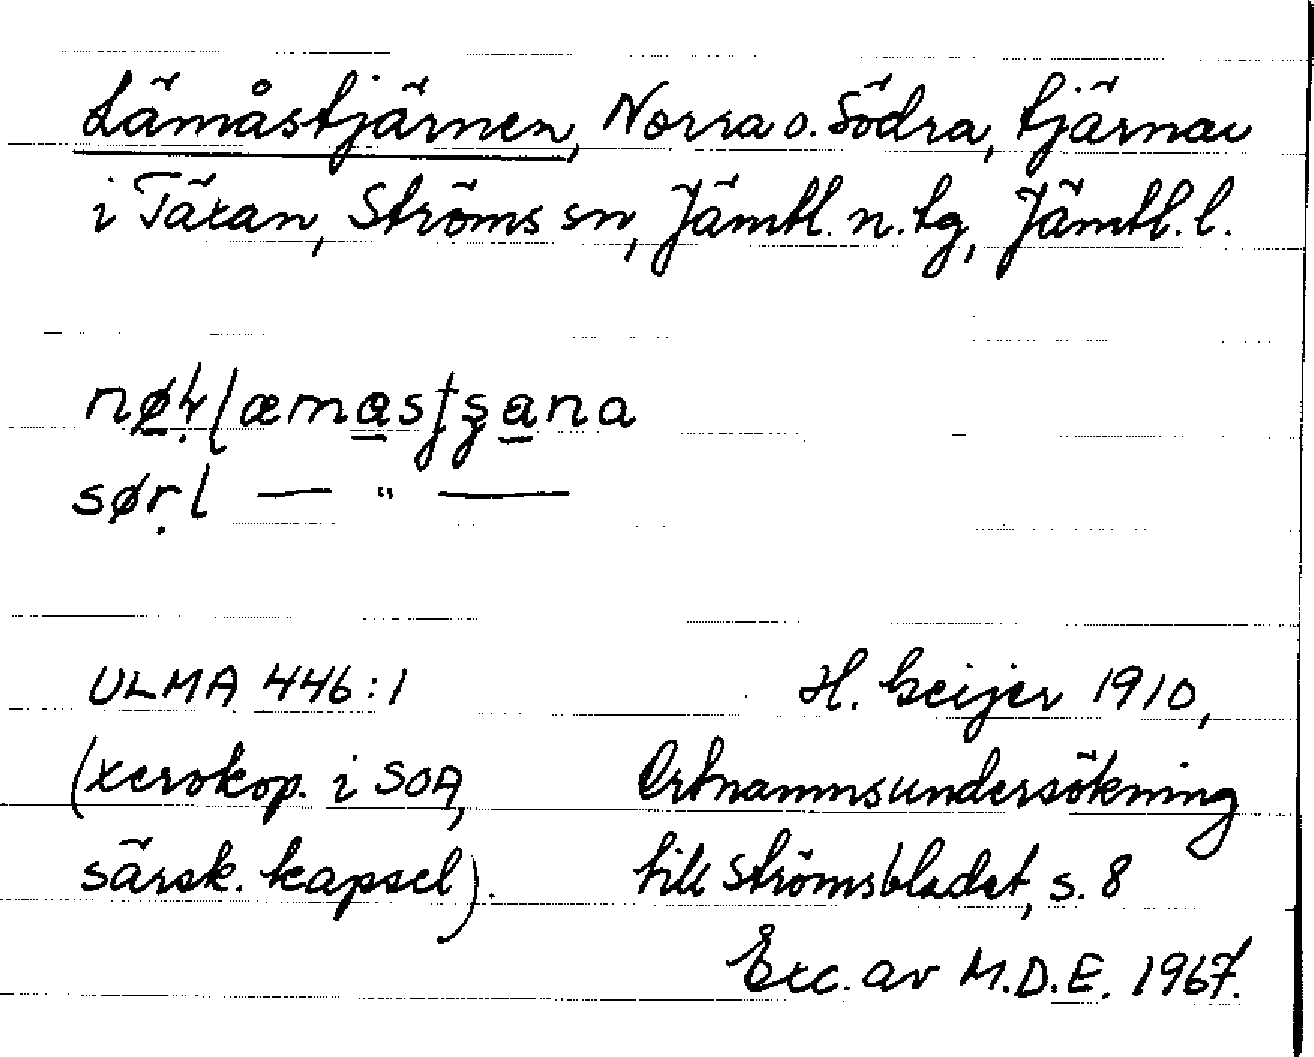 Lämåstjärnen, Norra o. Södra, tjärnar
i Täxan, Ströms sn, Jämtl. n. tg, Jämtl. l.
sørl — " —
ULMA 446:1
H. Geijer 1910,
(xerokop. i SOA,
Ortnamnsundersökning
särsk. kapsel).
till Strömsbladet, s. 8
Exc. av M.D.E. 1967.